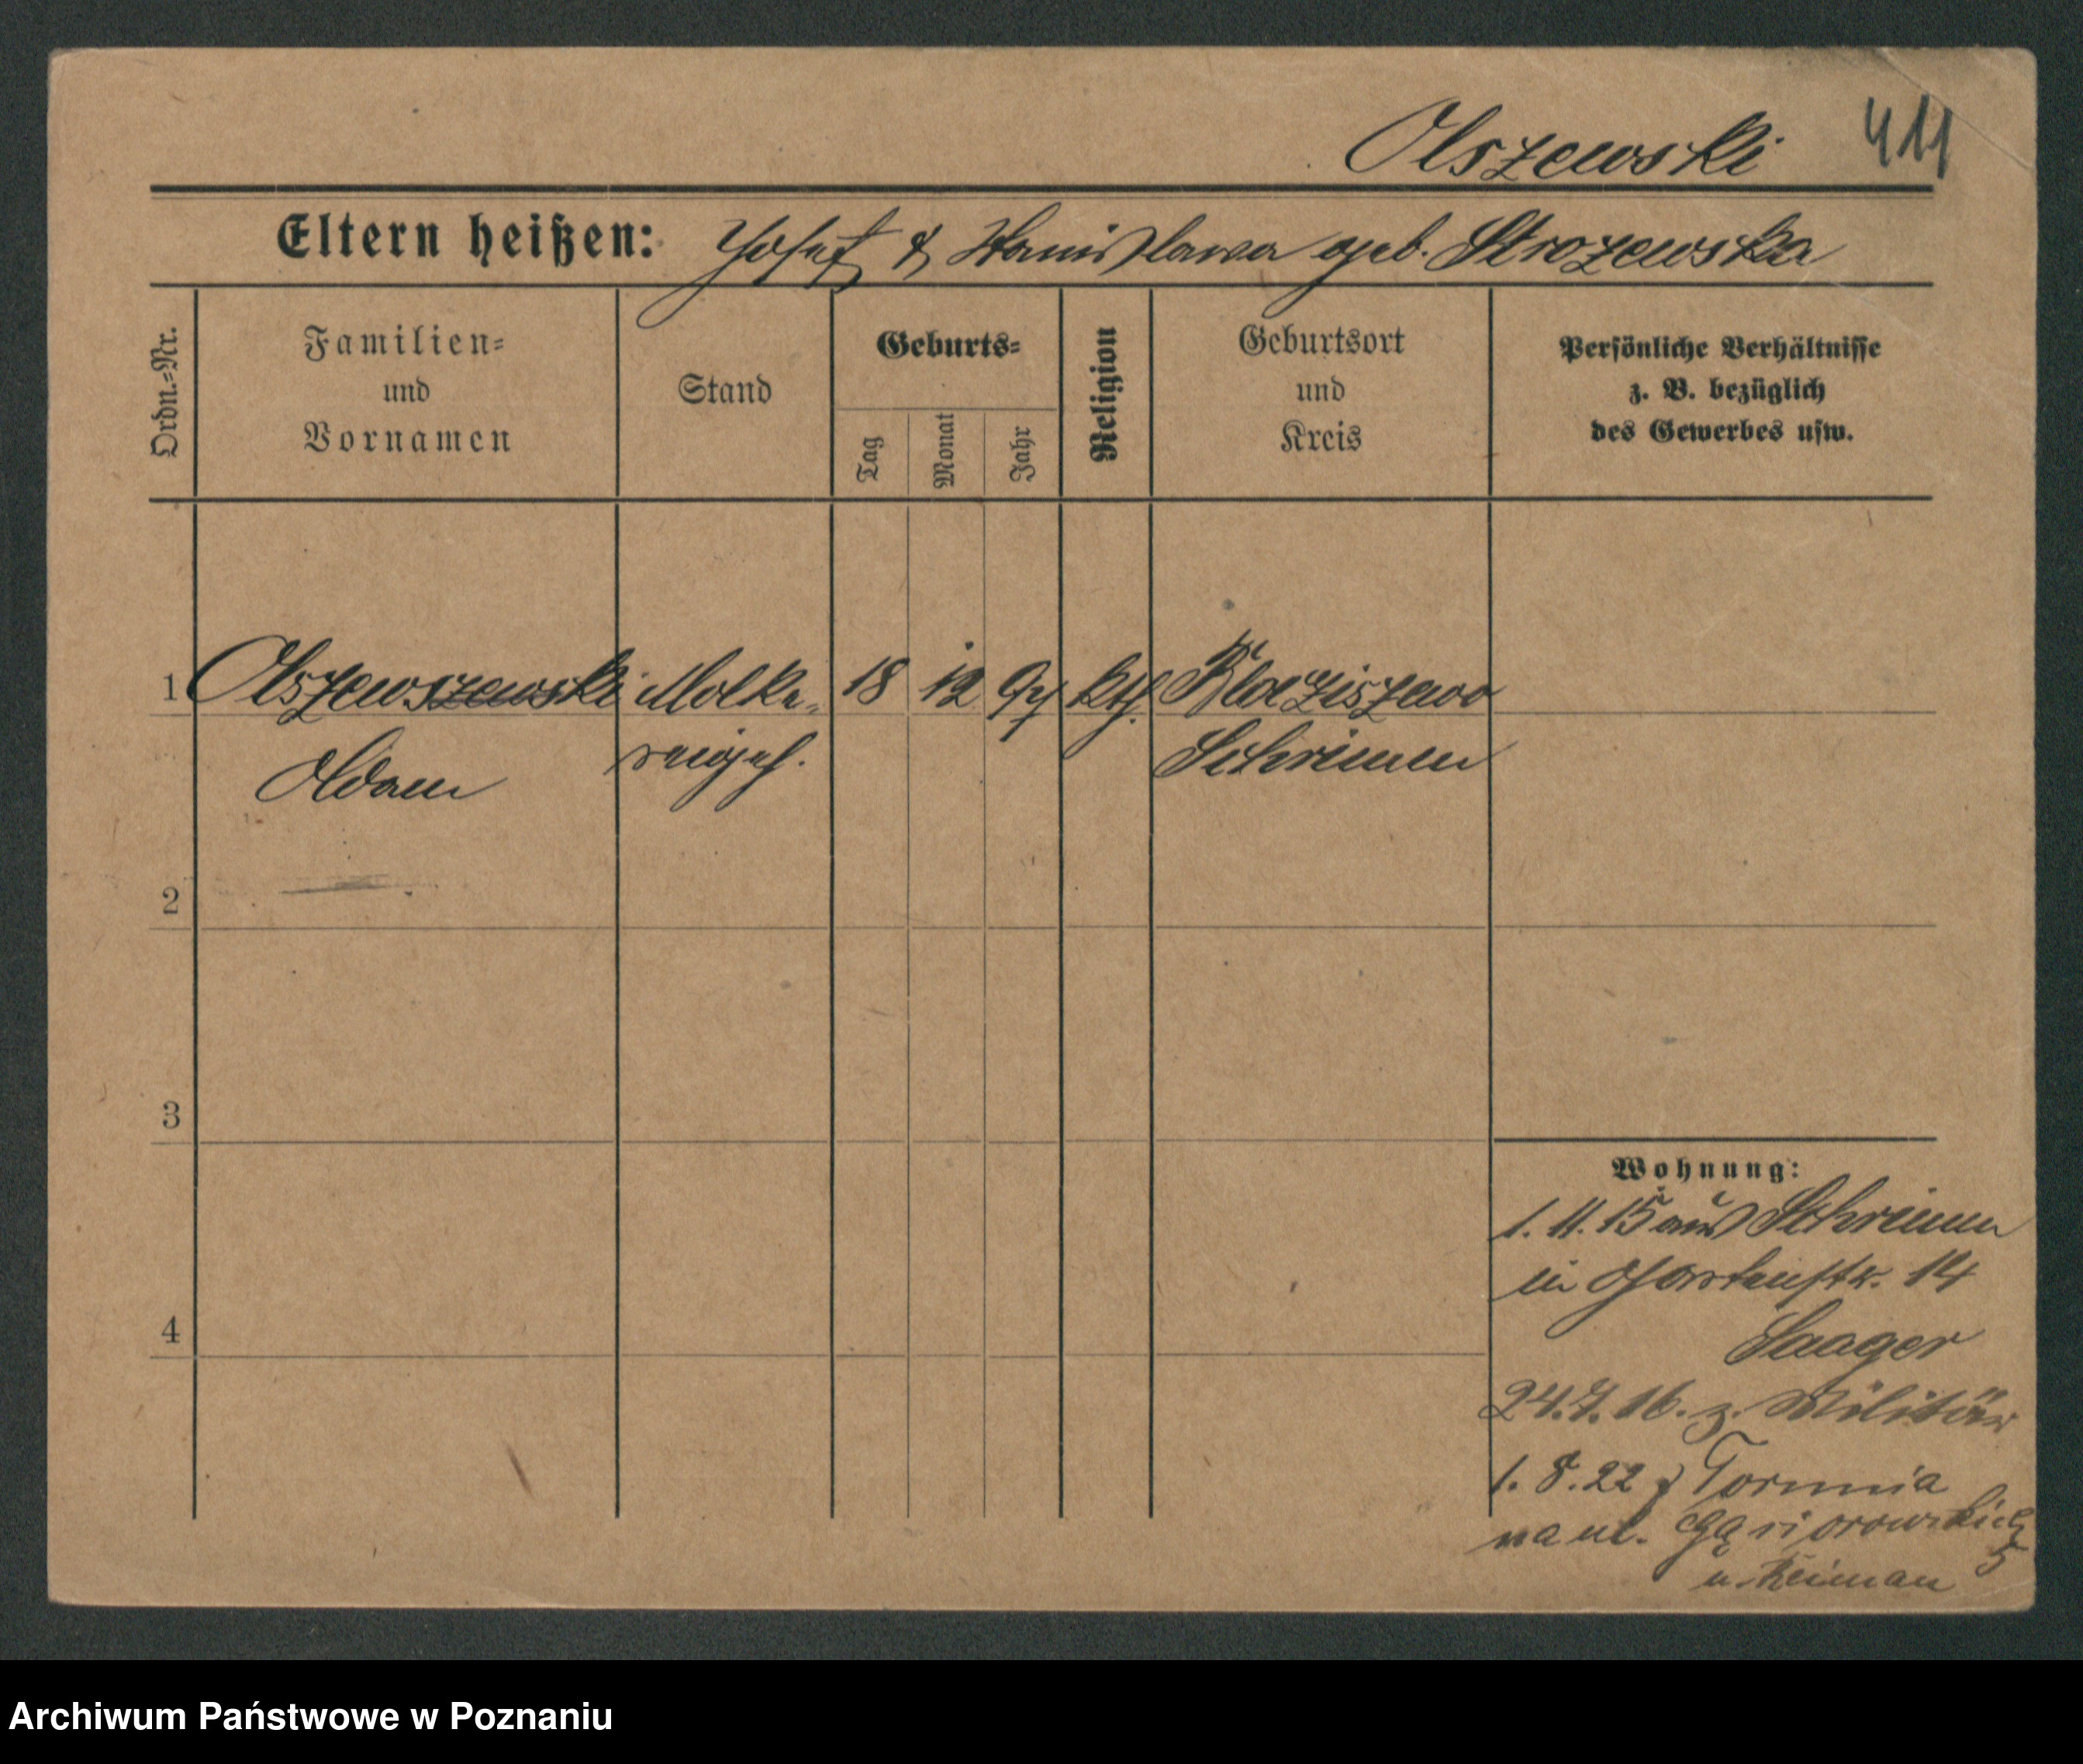 Olszewski 411
Eltern heißen: Josef & Stanislawa geb. Strozewska
Ordn.-Nr.
Familien-
und
Vornamen
Stand
Geburts-
Tag
Monat
Jahr
Religion
Geburtsort
und
Kreis
Persönliche Verhältnisse
z. B. bezüglich
des Gewerbes usw.
1 Olszewszewski Molke- 18 12 97 kth.
Adam reigeh. Schrimm
2
3
4
Wohnung:
1. 11. 15 aus Schrimm
in Gartenstr. 14
Saager
24.7.16. z. Militär
1. 8. 22 z Torunia
na ul. Gąsiorowskich
5
u. Reiman
Archiwum Państwowe w Poznaniu